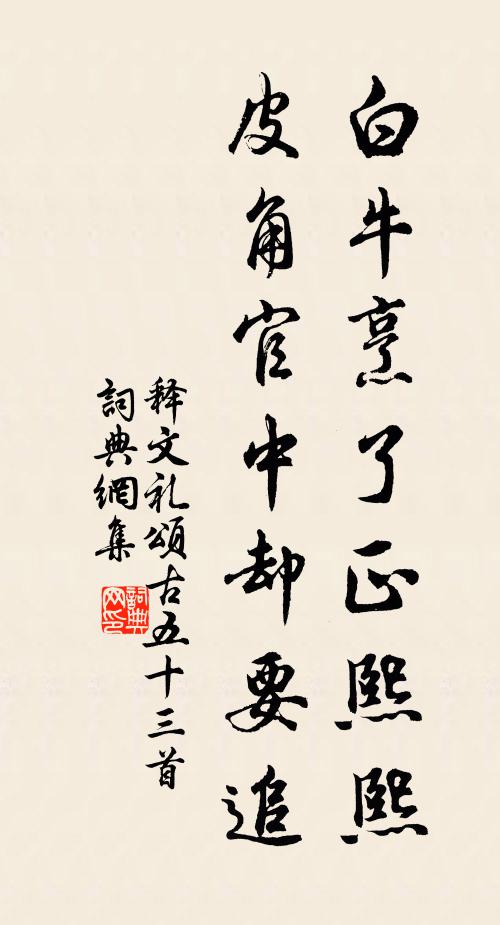 白牛烹了正熙熙
皮角官中却要追
释文礼頌古五十三首
詞典網集
詞典网印